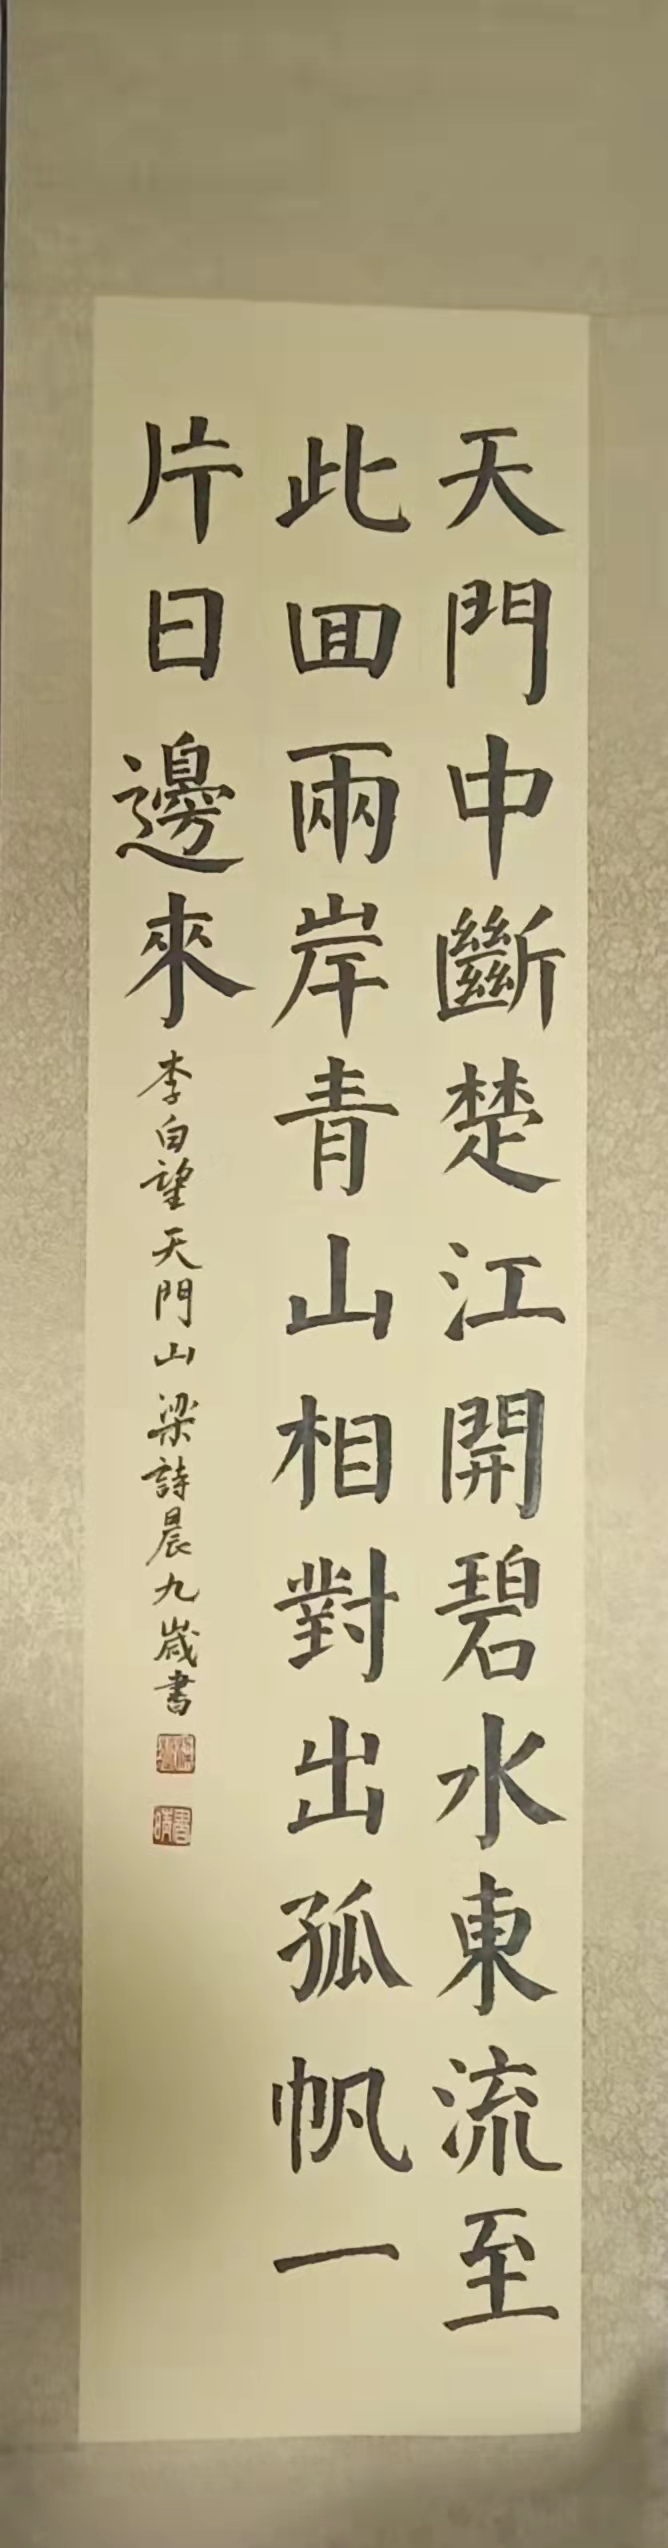 天門中斷楚江開碧水東流至
此囬兩岸青山相對出孤帆一
片日邊來
李白望天門山 梁詩晨九歲書